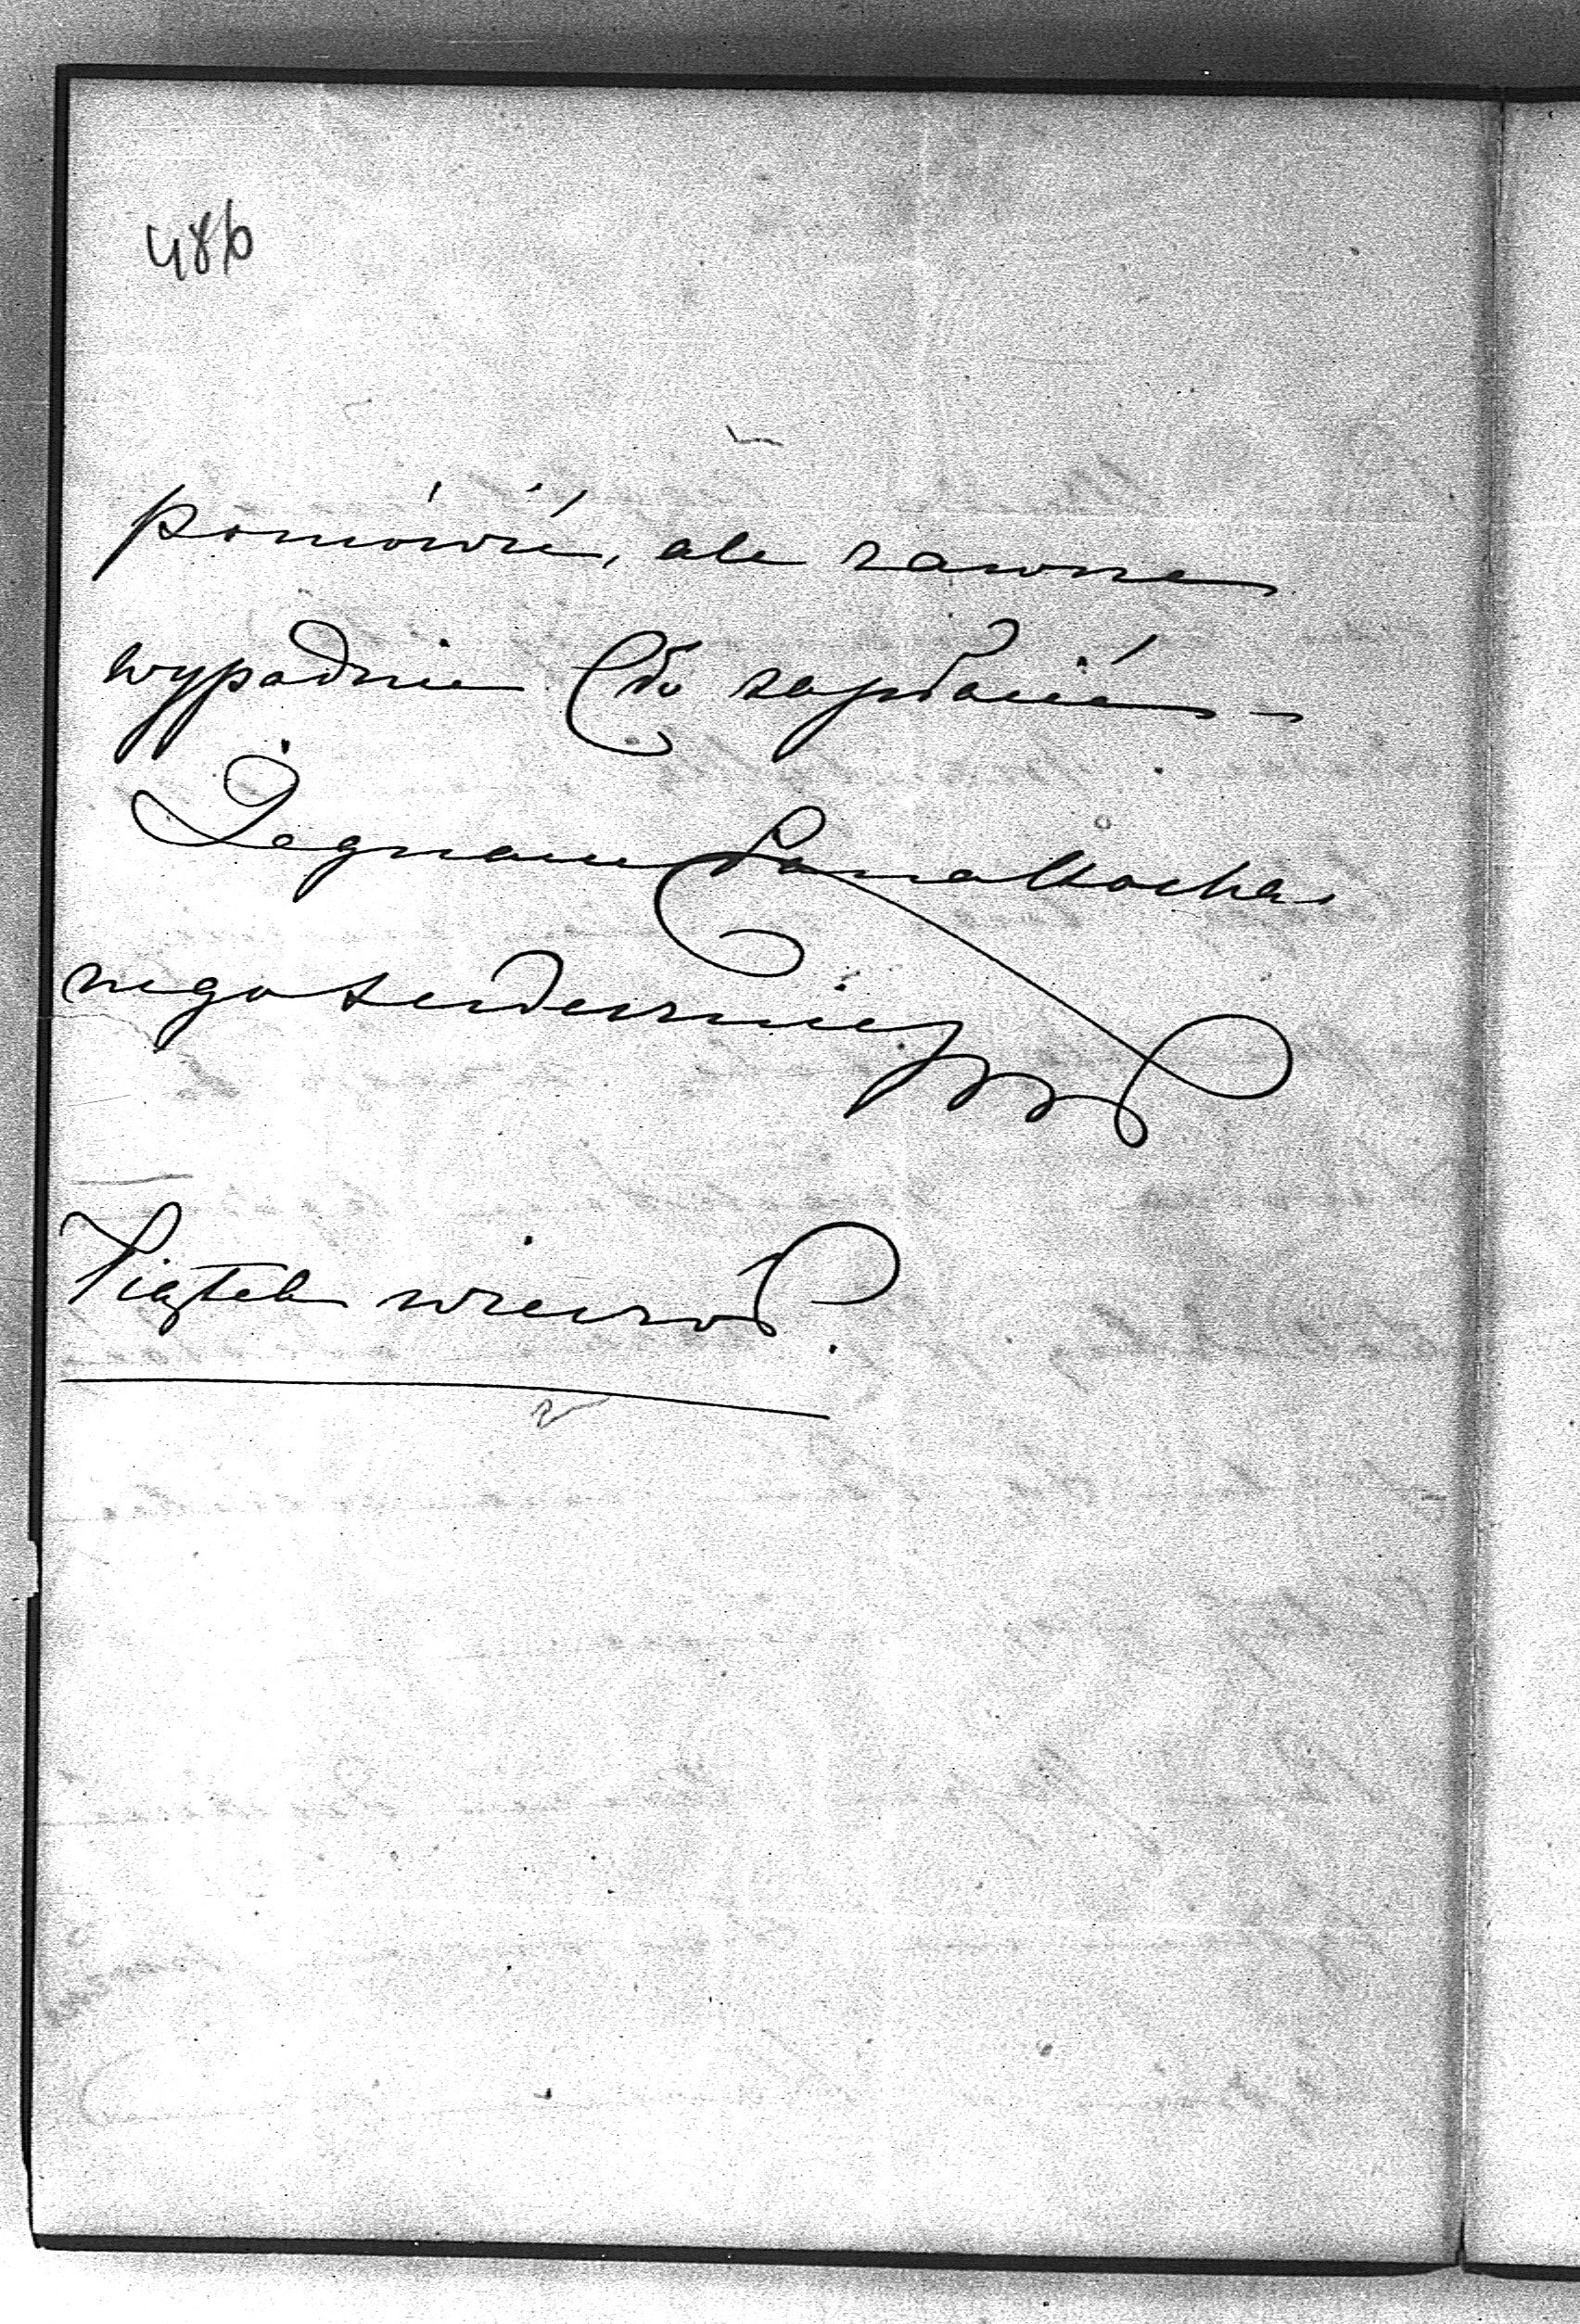 486
pomówić, ale zawsze
wypadnie Cło zapłacić –
Żegnam Pana kocha-
nego serdecznie
Piątek wieczór.